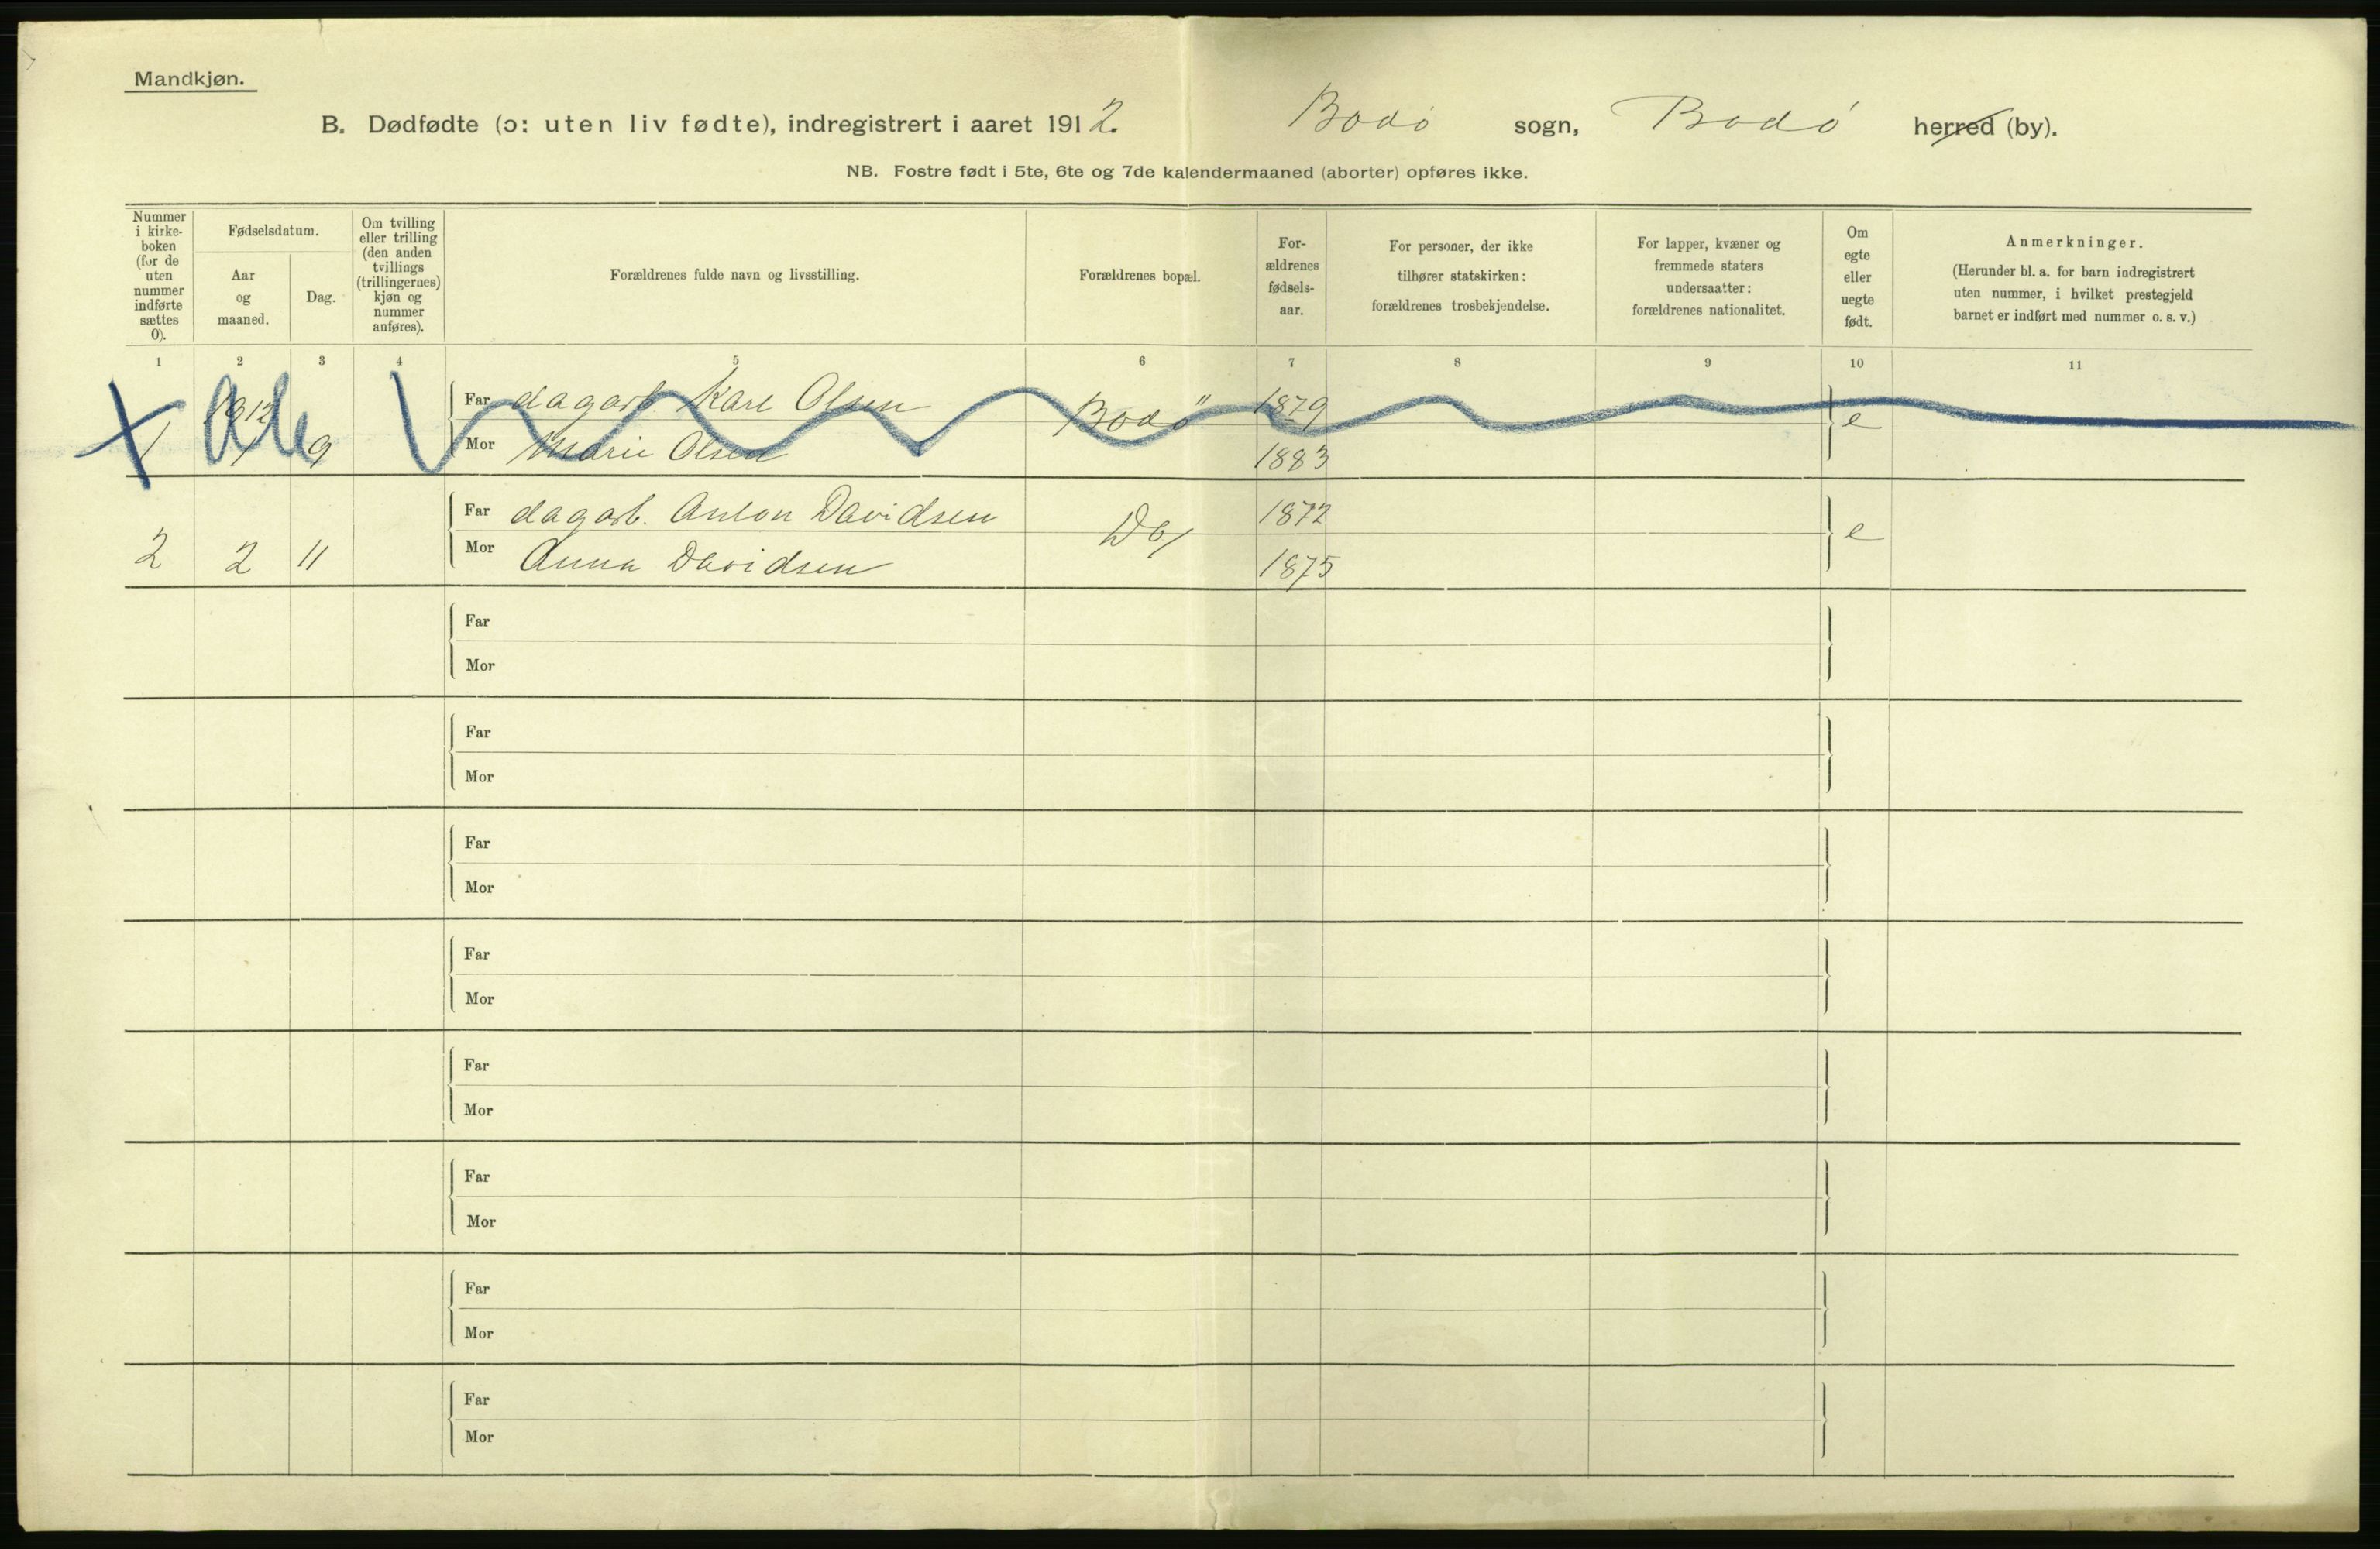 Mandkjøn.
B. Dødfødte (ɔ: uten liv fødte), indregistrert i aaret 1912. Bodö sogn, Bodö herred (by).
NB. Fostre født i 5te, 6te og 7de kalendermaaned (aborter) opføres ikke.
Nummer i kirke-boken (for de uten nummer indførte sættes 0).
Fødselsdatum.
Aar og maaned.
Dag.
Om tvilling eller trilling (den anden tvillings (trillingernes) kjøn og nummer anføres).
Forældrenes fulde navn og livsstilling.
Forældrenes bopæl.
For-ældrenes fødsels-aar.
For personer, der ikke tilhører statskirken: forældrenes trosbekjendelse.
For lapper, kvæner og fremmede staters undersaatter: forældrenes nationalitet.
Om egte eller uegte født.
Anmerkninger.
(Herunder bl. a. for barn indregistrert uten nummer, i hvilket prestegjeld barnet er indført med nummer o. s. v.)
1 2 3 4 5 6 7 8 9 10 11
1912 Far dagarb Karl Olsen Bodö 1879 e
1 1 9 Mor Marie Olsen 1883
Far dagarb. Anton Davidsen Do/ 1872 e
2 2 11 Mor Anna Davidsen 1875
Far
Mor
Far
Mor
Far
Mor
Far
Mor
Far
Mor
Far
Mor
Far
Mor
Far
Mor